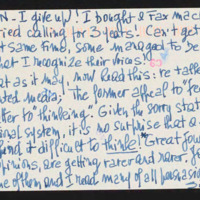 N - I give up! I bought a Fax mac
ried calling for 3 years! Can't get
t same time, some managed to be
that I recognize their voices!
at as it may, now read this: re talk
ated media; "The former appeal to 'fee
tter to thinking". Given the sorry stat
ional system, it is no surprise that a
find it difficult to think! Great fou
pinions, are getting rarer and rarer.
e of them and I read many of all persuasio